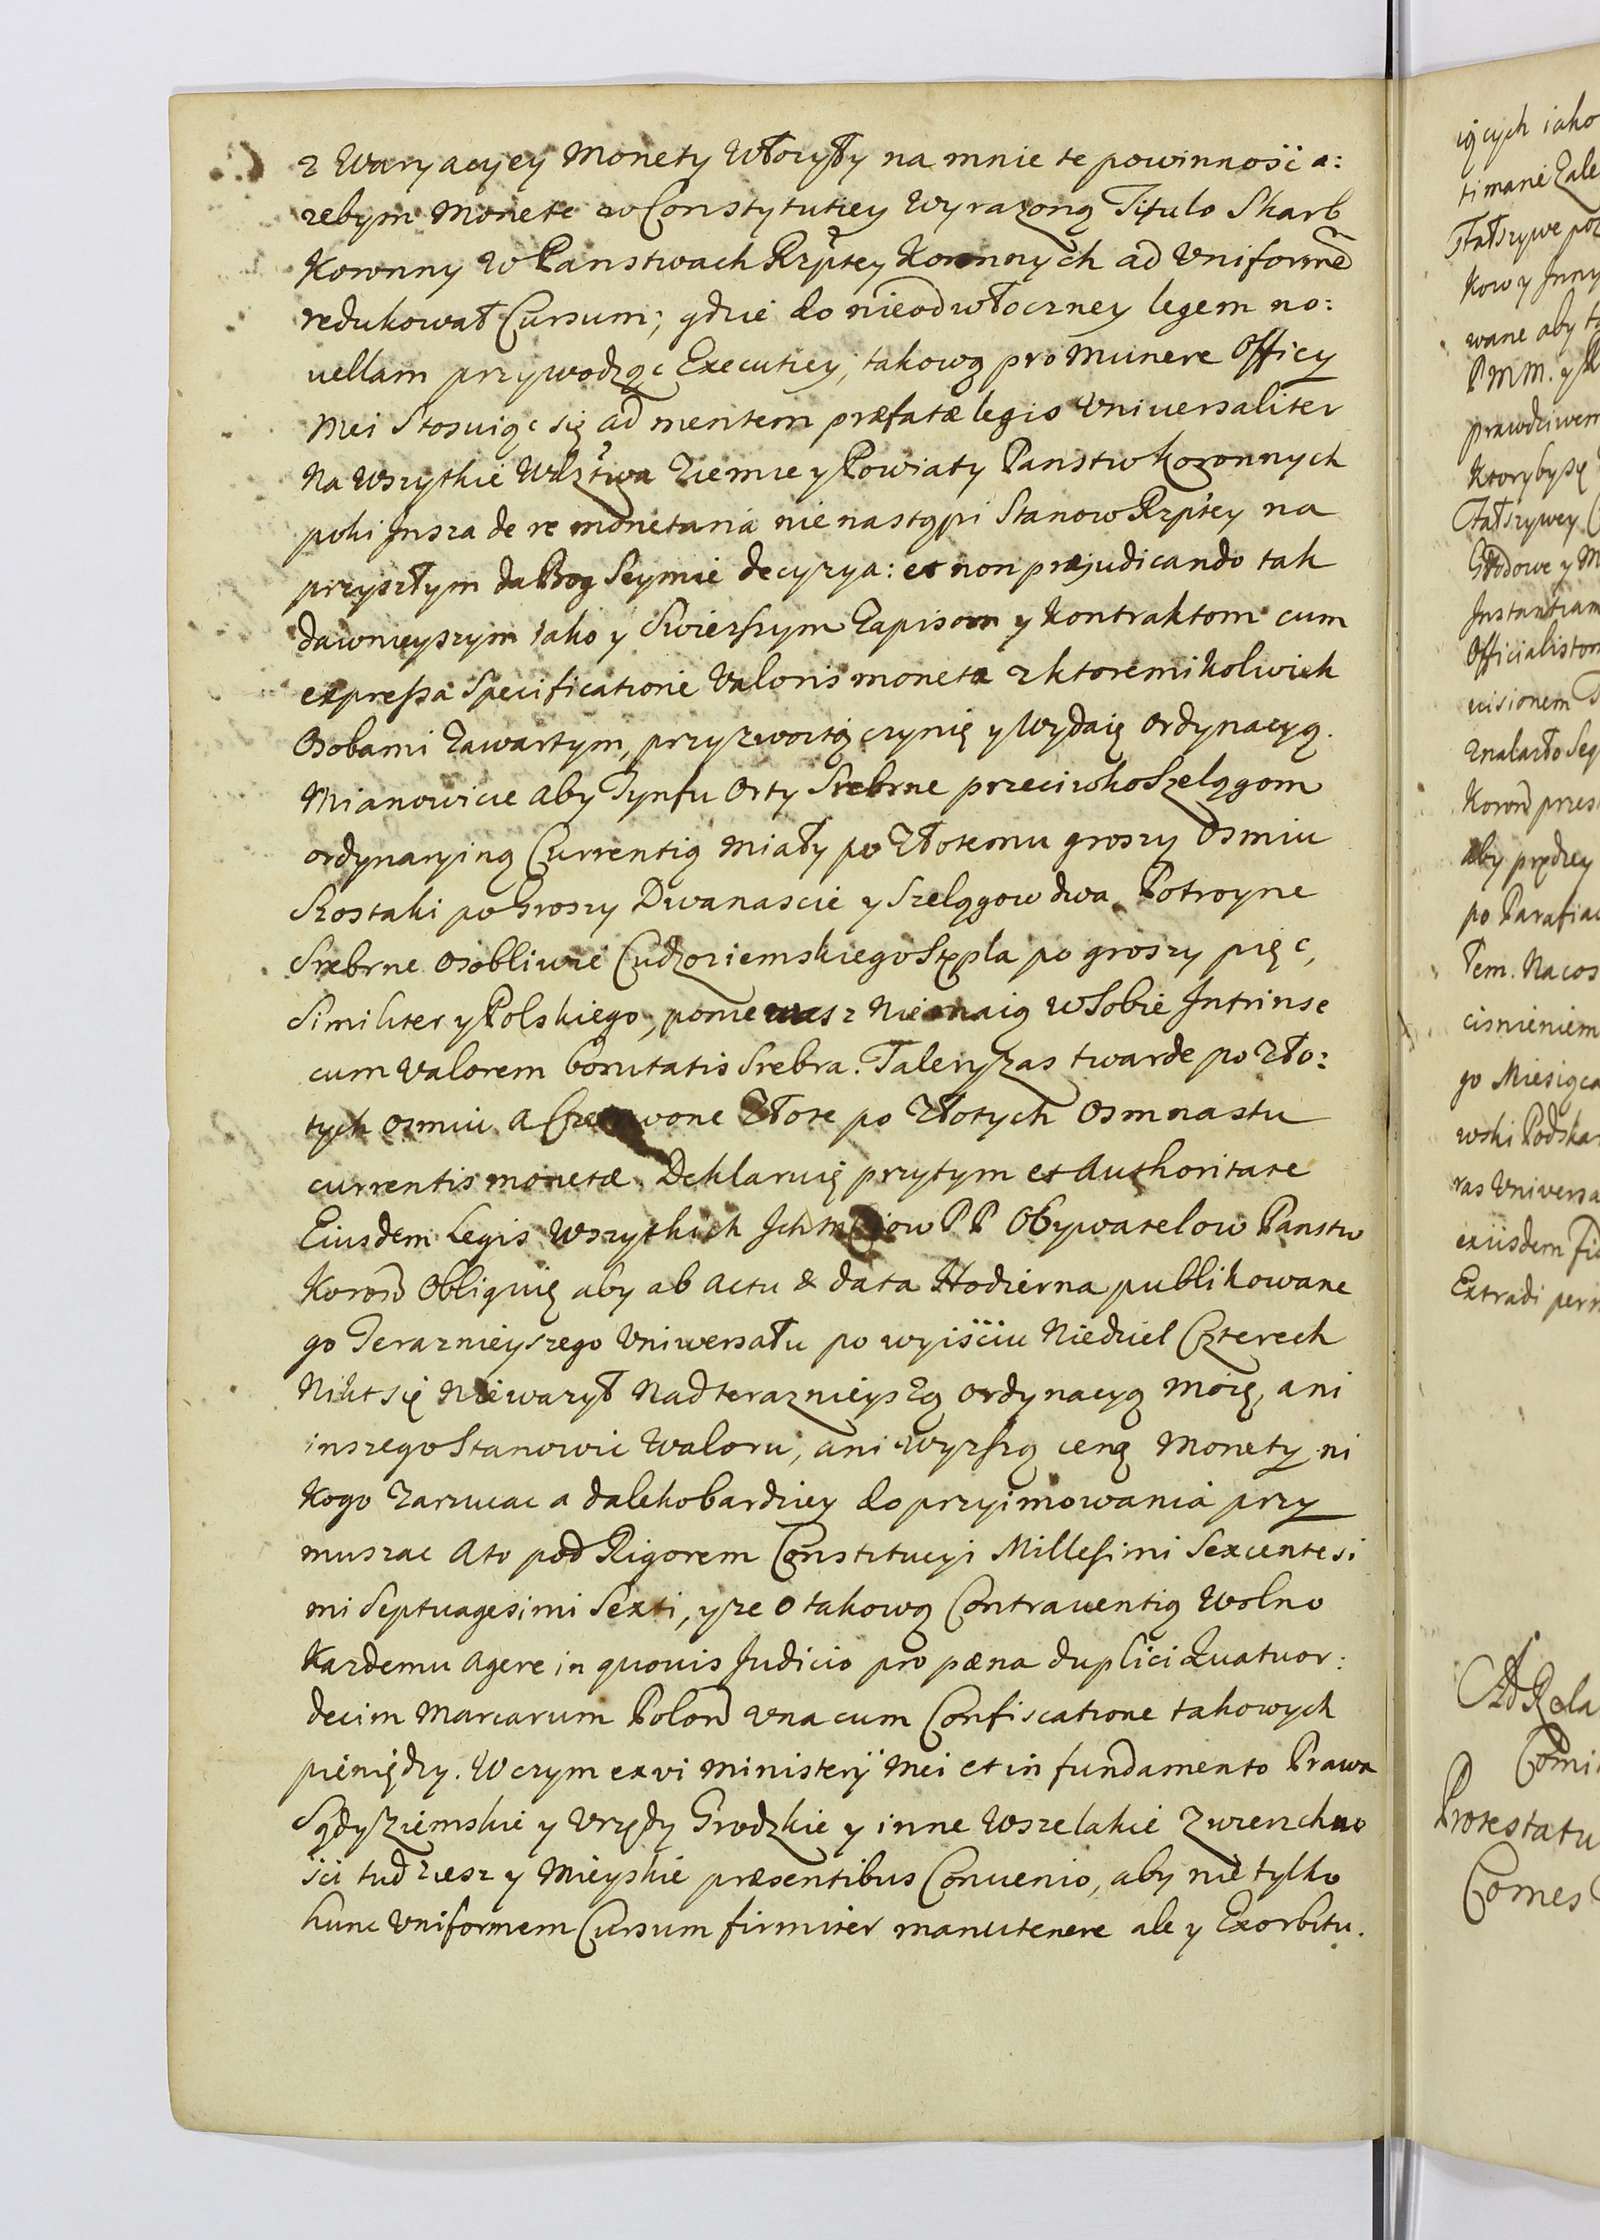 z Waryacyey Monety Włozyły na mnie te powinność a:
zebym Monete w Constytutiey Wyrazoną Titulo Skarb
Koronny W Panstwach Rzptey Koronnych ad Uniformẽ
redukował Cursum; gdzie do nieodwłoczney legem no:
uellam przywodząc Executiey, takową pro Munere Officy
Mei Stosuiąc się ad mentem præfatæ legis Universaliter
Na Wszytkie Wdztwa Ziemie y Powiaty Panstw Koronnych
poki Insza de re monetaria nie nastąpi Stanow Rzptey na
przyszłym da Bog Seymie decyzya: et non præjudicando tak
dawnieyszym iako y Swiezszym Zapisom y Kontraktom cum
expressa Specificatione Valoris monetæ z ktoremikolwiek
Osobami Zawartym, przyzwoitą czynię y Wydaię Ordynacyą.
Mianowicie aby Tynfu Orty Srebrne przeciwko Szelągom
ordynaryiną Currentią Miały po Złotemu groszy Osmiu
Szostaki po Groszy Dwanascie y Szelągow dwa. Potroyne
Srebrne osobliwie Cudzoziemskiego Stępla po groszy pięć,
Similiter y Polskiego, poniewasz Nie maią w Sobie Intrinse
cum Valorem bonitatis Srebra. Talery zas twarde po Zło:
tych osmiu A Czerwone Złote po Złotych Osmnastu
currentis monetæ. Deklaruię przytym et Authoritate
Eiusdem Legis Wszytkich Ichmciow PP Obywatelow Panstw
Koron Obliguię aby ab actu & data Hodierna publikowane
go Teraznieyszego Uniwersału po wyiściu Niedziel Czterech
Nikt się Nie wazył Nad teraznieyszą ordynacyą moię, ani
inszego Stanowic Waloru, ani wyzszą ceną Monety ni
Kogo Zarzucac a daleko bardziey do przyimowania przy
muszac Ato pod Rigorem Constitucyi Millesimi Sexcentesi
mi Septuagesimi Sexti, y ze o takową Contraventią Wolno
Kazdemu Agere in quovis Judicio pro pæna duplici Quatuor:
decim Marcarum Polon Una cum Confiscatione takowych
pieniędzy. W czym ex vi Ministerÿ Mei et in fundamento Prawa
Sądy Ziemskie y Urzędy Grodzkie y inne Wszelakie Zwierzchno
ści tudziesz y Mieyskie præsentibus Convenio, aby nie tylko
hunc Uniformem Cursum firmiter manutenere ale y Exorbitu.
iących iako
timanie Zale
Fałszywe po
Kow y Inny
wane aby
PMM. y
prawdziwem
Ktoryby się
Fałszywey
Grodowe y M
Instantiam
Officialistom
uisionem
Znalazło Seq
Koron przes
Aby prędzey
po Parafia
Tem. Na cos
cisnieniem
go Miesiąca
wski Podskar
ras Universa
exiisdem
Extradi perm
Ad Rela
Protestatu
Comes